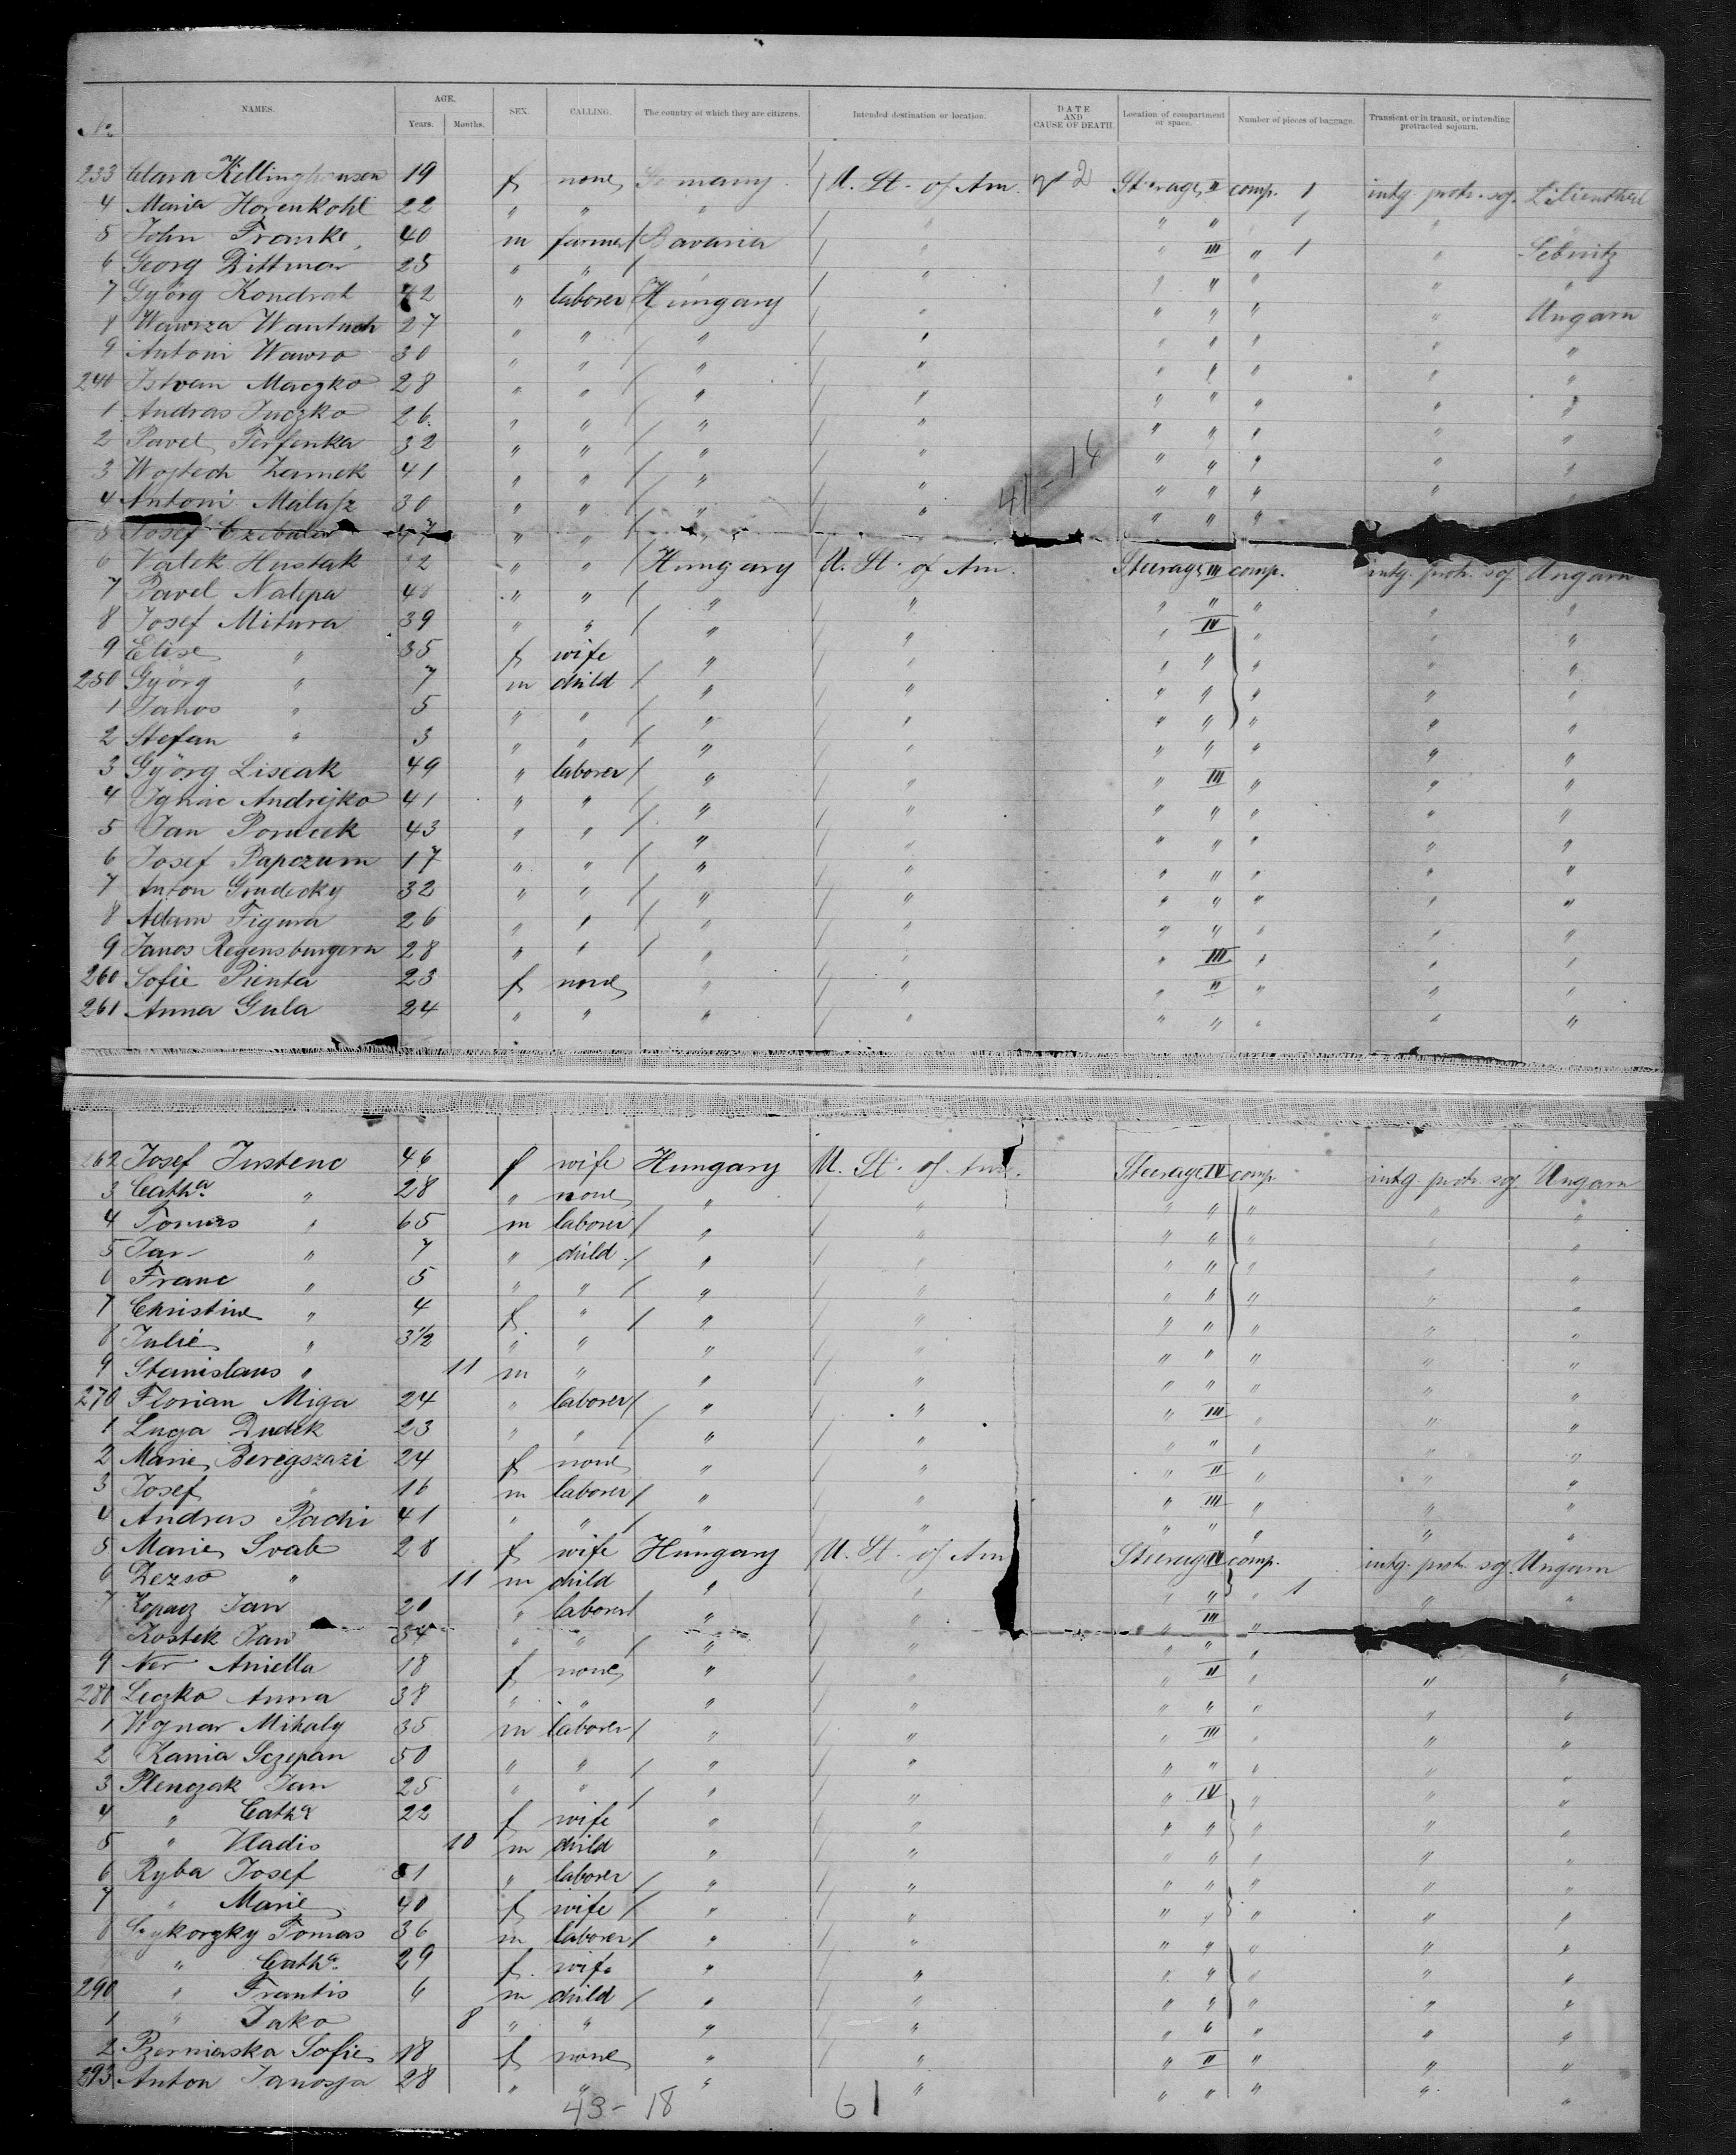 No. NAMES. AGE. Years. Months. SEX. CALLING. The country of which they are citizens. Intended destination or location. DATE AND CAUSE OF DEATH. Location of compartment or space. Number of pieces of baggage. Transient or in transit, or intending protracted sojourn.
233 Clara Kellinghousen 19 f none Germany U. St. of Am. 2 Steerage II comp. 1 intg. protr. soj. Lilienthal
4 Maria Horenkohl 22 " " " " " " " 1 "
5 John Franke 40 m farmer Bavaria " " III " 1 " Sebnitz
6 Georg Dittmar 25 " " " " " " " "
7 Györg Kondrat 42 " laborer Hungary " " " " " Ungarn
8 Wawrza Wantuch 27 " " " " " " " " "
9 Antoni Wawro 30 " " " " " " " " "
240 Istvan Maczko 28 " " " " " " " " "
1 Andras Juczko 26 " " " " " " " " "
2 Pavel Ferfenka 32 " " " " " " " " "
3 Wojtech Zamek 41 " " " " " " " " "
4 Antoni Malasz 30 " " " " 41-14 " " " "
5 Josef " " " " " "
6 Valek Hustak " " Hungary U. St. of Am. Steerage III comp. intg. protr. soj. Ungarn
7 Pavel Nalepa 48 " " " " " " " " "
8 Josef Mitura 39 " " " " " IV " " "
9 Elise " 35 f wife " " " " " " "
250 Györg " 7 m child " " " " " " "
1 Janos " 5 " " " " " " " " "
2 Stefan " 3 " " " " " " " " "
3 Györg Liscak 49 " laborer " " " III " " "
4 Ignac Andrejko 41 " " " " " " " " "
5 Jan Porucek 43 " " " " " " " " "
6 Josef Papczum 17 " " " " " " " " "
7 Anton Grudecky 32 " " " " " " " " "
8 Adam Figura 26 " " " " " " " " "
9 Janos Regensburgern 28 " " " " " III " " "
260 Sofie Pienta 23 f none " " " II " " "
261 Anna Gula 24 " " " " " " " " "
262 Josef Justenc 46 f wife Hungary U. St. of Am. Steerage IV comp. intg. protr. soj. Ungarn
3 Catha " 28 " none " " " " " " "
4 Tomas " 65 m laborer " " " " " " "
5 Jan " 7 " child " " " " " " "
6 Franc " 5 " " " " " " " " "
7 Christine " 4 f " " " " " " " "
8 Julie " 3 1/2 " " " " " " " " "
9 Stanislaus " 11 m " " " " " " " "
270 Florian Miga 24 " laborer " " " III " " "
1 Luga Dudek 23 " " " " " " " " "
2 Marie Beregszazi 24 f none " " " II " " "
3 Josef " 16 m laborer " " " III " " "
4 Andras Pachi 41 " " " " " " " " "
5 Marie Svab 28 f wife Hungary U. St. of Am Steerage IV comp. intg. protr. soj. Ungarn
6 Dezso " 11 m child " " " " 1 " "
7 Kopacz Jan 20 " laborer " " " III "
Kostek Jan 34 " " " " " " "
9 Ner Aniella 18 f none " " " II " "
280 Leczko Anna 38 " " " " " " " " "
1 Wojnar Mihaly 35 m laborer " " " III " " "
2 Kania Sczepan 50 " " " " " " " " "
3 Plenczak Jan 25 " " " " " IV " " "
4 " Catha 22 f wife " " " " " " "
5 " Vladis 10 m child " " " " " " "
6 Ryba Josef 51 " laborer " " " " " " "
7 " Marie 40 f wife " " " " " " "
8 Cykorzky Tomas 36 m laborer " " " " " " "
" Catha 29 f wife " " " " " " "
290 " Frantis 6 m child " " " " " " "
1 " Jako 8 " " " " " " " " "
2 Pzerniarska Sofie 18 f none " " " II " " "
293 Anton Janosja 28 " " " " " " " " "
43-18 61